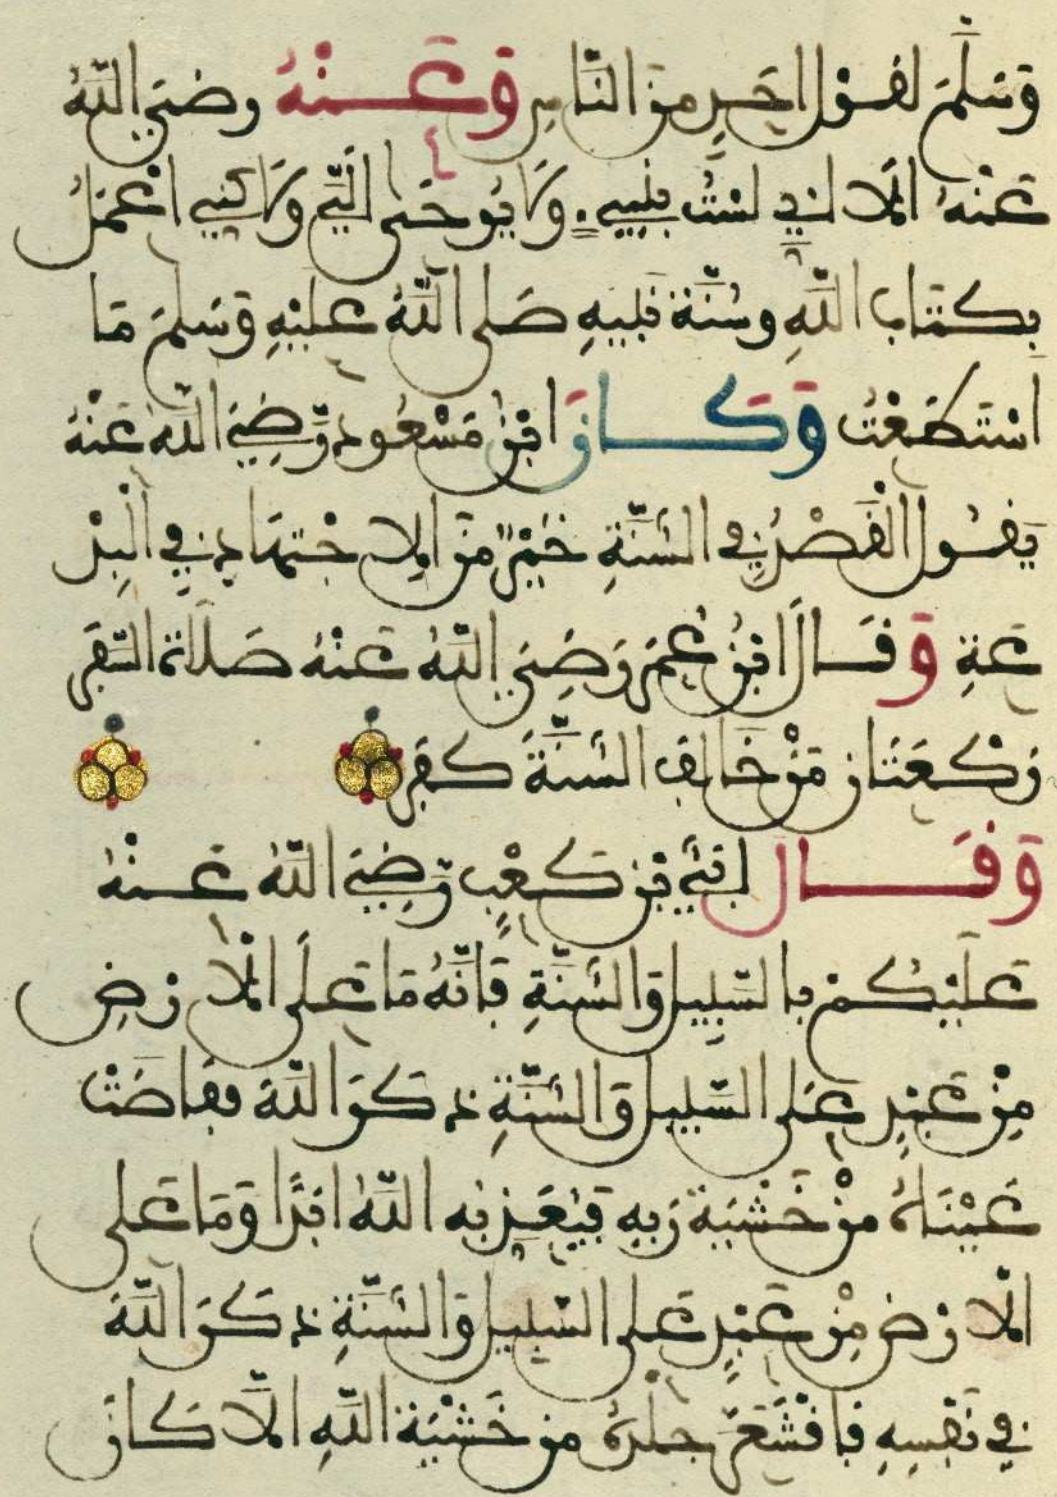 وَسَلَّمَ لِقَوْلِ اَحَدٍ مِنَ النَّاسِ وَعَنْهُ رضيَ اللَّهُ
عَنْهُ اَلَا اِنِّي لَسْتُ بِنَبِيٍّ وَلَا يُوحَى اِلَيَّ وَلَاكِنِّي اَعْمَلُ
بِكِتَابِ اللَّهِ وسُنَّةِ نَبِيِّهِ صَلى اللَّهُ عَلَيْهِ وَسَلمَ مَا
اسْتَطَعْتُ وَكَانَ ابْنُ مَسْعُودٍ رَضِيَ اللَّهُ عَنْهُ
يَقُولُ الْقَصْدُ فِي السُّنَّةِ خَيْرٌ مِنَ الِاجْتِهَادِ فِي الْبِدْ
عَةِ وَقَالَ ابْنُ عُمَرَ رَضِيَ اللَّهُ عَنْهُ صَلَاةُ السَّفَرِ
رَكْعَتَانِ مَنْ خَالَفَ السُّنَّةَ كَفَرَ
وَقَالَ اُبَيُّ بْنُ كَعْبٍ رَضِيَ اللَّهُ عَنْهُ
عَلَيْكُمْ بِالسَّبِيلِ وَالسُّنَّةِ فَاِنَّهُ مَا عَلَى الْاَرْضِ
مِنْ عَبْدٍ عَلَى السَّبِيلِ وَالسُّنَّةِ ذَكَرَ اللَّهَ ففَاضَتْ
عَيْنَاهُ مِنْ خَشْيَةِ رَبِّهِ فَيُعَذِّبُهُ اللَّهُ اَبَدًا وَمَا عَلَى
الْاَرْضِ مِنْ عَبْدٍ عَلَى السَّبِيلِ وَالسُّنَّةِ ذَكَرَ اللَّهَ
فِي نَفْسِهِ فَاقْشَعَرَّ جِلْدُهُ مِنْ خَشْيَةِ اللَّهِ اِلَّا كَانَ